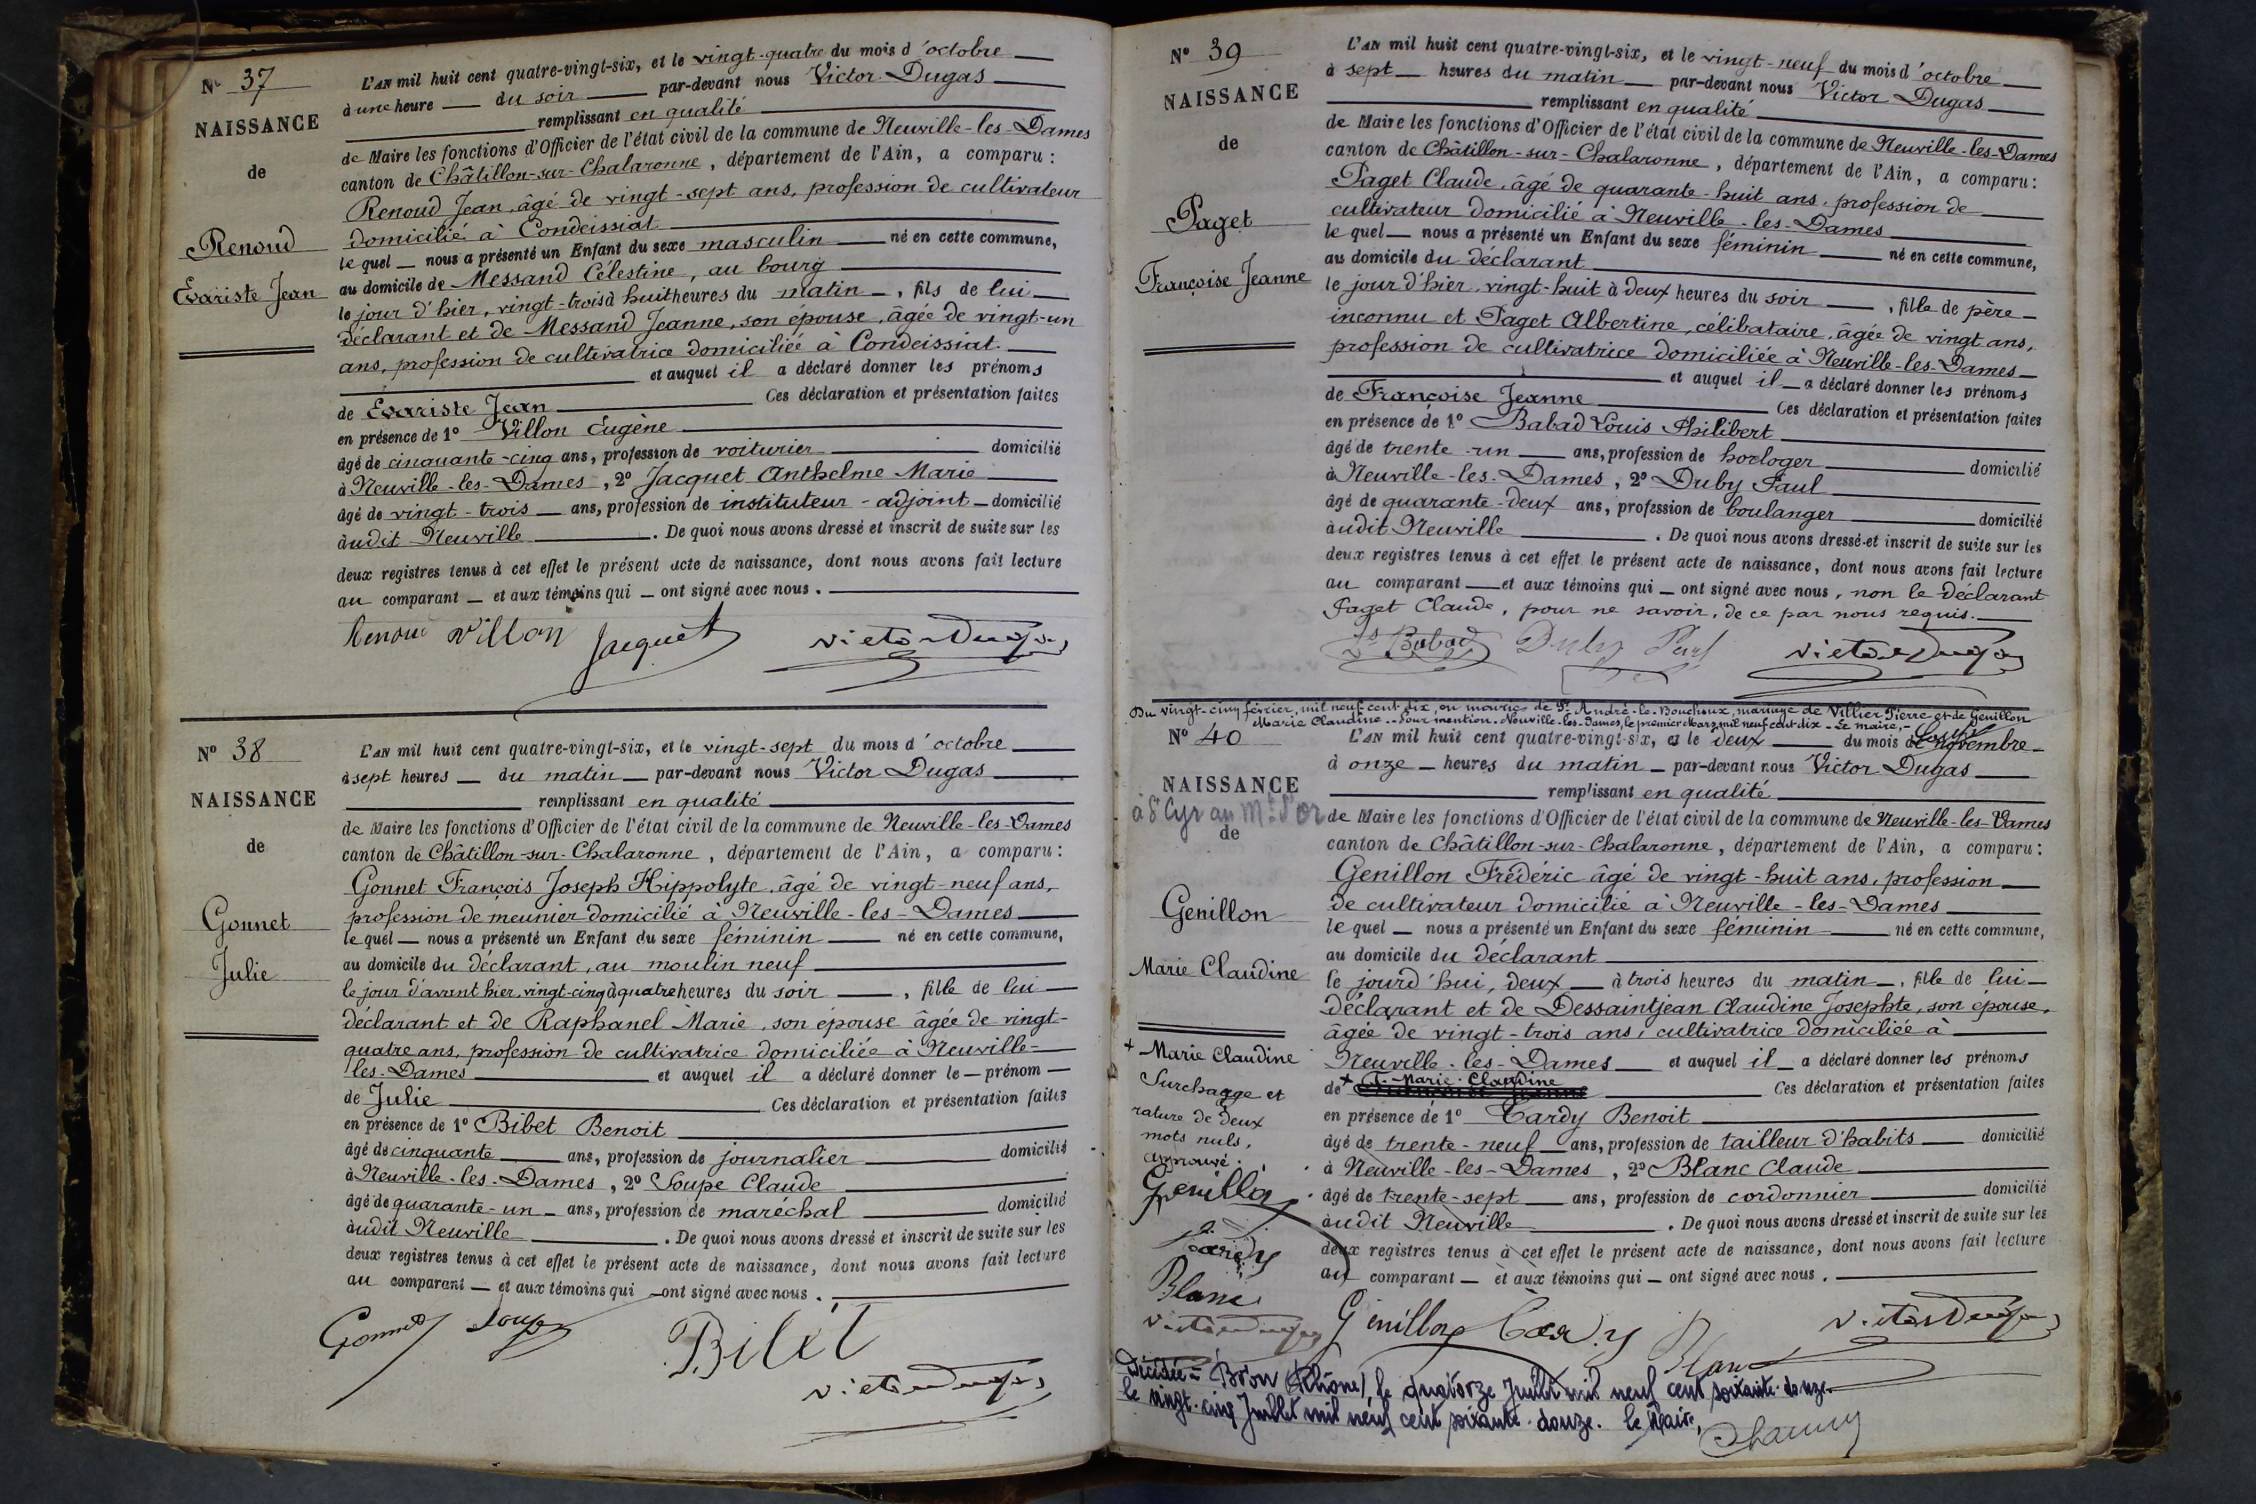 N° 37
NAISSANCE
de
Renoud
Evariste Jean
L'AN mil huit cent quatre-vingt-six, et le vingt-quatre du mois d'octobre
à une heure du soir par-devant nous Victor Dugas
remplissant en qualité
de Maire les fonctions d'Officier de l'état civil de la commune de Neuville-les-Dames
canton de Châtillon-sur-Chalaronne, département de l'Ain, a comparu :
Renoud Jean, âgé de vingt-sept ans, profession de cultivateur
domicilié à Condeissiat
le quel nous a présenté un Enfant du sexe masculin né en cette commune,
au domicile de Messand Célestine, au bourg
le jour d'hier, vingt-trois à huit heures du matin, fils de lui
déclarant et de Messand Jeanne, son épouse, âgée de vingt-un
ans, profession de cultivatrice domiciliée à Condeissiat.
et auquel il a déclaré donner les prénoms
de Evariste Jean Ces déclaration et présentation faites
en présence de 1° Villon Eugène
âgé de cinquante-cinq ans, profession de voiturier domicilié
à Neuville-les-Dames, 2° Jacquet Anthelme Marie
âgé de vingt-trois ans, profession de instituteur-adjoint domicilié
àudit Neuville. De quoi nous avons dressé et inscrit de suite sur les
deux registres tenus à cet effet le présent acte de naissance, dont nous avons fait lecture
au comparant et aux témoins qui ont signé avec nous.
Renoud Villon Jacquet Victor Dugas
N° 38
NAISSANCE
de
Gonnet
Julie
L'AN mil huit cent quatre-vingt-six, et le vingt-sept du mois d'octobre
à sept heures du matin par-devant nous Victor Dugas
remplissant en qualité
de Maire les fonctions d'Officier de l'état civil de la commune de Neuville-les-Dames
canton de Châtillon-sur-Chalaronne, département de l'Ain, a comparu :
Gonnet François Joseph Hippolyte, âgé de vingt-neuf ans,
profession de meunier domicilié à Neuville-les-Dames
le quel nous a présenté un Enfant du sexe féminin né en cette commune,
au domicile du déclarant, au moulin neuf
le jour d'avant hier, vingt-cinq à quatre heures du soir, fille de lui
déclarant et de Raphanel Marie, son épouse âgée de vingt-
quatre ans, profession de cultivatrice domiciliée à Neuville-
les-Dames et auquel il a déclaré donner le prénom
de Julie Ces déclaration et présentation faites
en présence de 1° Bibet Benoit
âgé de cinquante ans, profession de journalier domicilié
à Neuville-les-Dames, 2° Soupe Claude
âgé de quarante-un ans, profession de maréchal domicilié
àudit Neuville. De quoi nous avons dressé et inscrit de suite sur les
deux registres tenus à cet effet le présent acte de naissance, dont nous avons fait lecture
au comparant et aux témoins qui ont signé avec nous.
Gonnet Soupe Bibet
Victor Dugas
N° 39
NAISSANCE
de
Paget
Françoise Jeanne
L'AN mil huit cent quatre-vingt-six, et le vingt-neuf du mois d'octobre
à sept heures du matin par-devant nous Victor Dugas
remplissant en qualité
de Maire les fonctions d'Officier de l'état civil de la commune de Neuville-les-Dames
canton de Châtillon-sur-Chalaronne, département de l'Ain, a comparu :
Paget Claude, âgé de quarante-huit ans, profession de
cultivateur domicilié à Neuville-les-Dames
le quel nous a présenté un Enfant du sexe féminin né en cette commune,
au domicile du déclarant
le jour d'hier, vingt-huit à deux heures du soir, fille de père
inconnu et Paget Albertine, célibataire, âgée de vingt ans,
profession de cultivatrice domiciliée à Neuville-les-Dames
et auquel il a déclaré donner les prénoms
de Françoise Jeanne Ces déclaration et présentation faites
en présence de 1° Babad Louis Philibert
âgé de trente-un ans, profession de horloger domicilié
à Neuville-les-Dames, 2° Duby Paul
âgé de quarante-deux ans, profession de boulanger domicilié
àudit Neuville. De quoi nous avons dressé et inscrit de suite sur les
deux registres tenus à cet effet le présent acte de naissance, dont nous avons fait lecture
au comparant et aux témoins qui ont signé avec nous, non le déclarant
Paget Claude, pour ne savoir, de ce par nous requis.
Babad Duby Paul Victor Dugas
Du vingt-cinq février, mil neuf cent dix, en mairie de St André-le-Bouchoux, mariage de Villier Pierre et de Genillon
Marie Claudine. Pour mention. Neuville-les-Dames, le premier Mars mil neuf cent dix. Le maire,
N° 40
NAISSANCE
à St Cyr au Mt d'or
de
Genillon
Marie Claudine
L'AN mil huit cent quatre-vingt-six, et le deux du mois de novembre
à onze heures du matin par-devant nous Victor Dugas
remplissant en qualité
de Maire les fonctions d'Officier de l'état civil de la commune de Neuville-les-Dames
canton de Châtillon-sur-Chalaronne, département de l'Ain, a comparu :
Genillon Frédéric âgé de vingt-huit ans, profession
de cultivateur domicilié à Neuville-les-Dames
le quel nous a présenté un Enfant du sexe féminin né en cette commune,
au domicile du déclarant
le jourd'hui, deux à trois heures du matin, fille de lui
déclarant et de Dessaintjean Claudine Josephte, son épouse,
âgée de vingt-trois ans, cultivatrice domiciliée à
Neuville-les-Dames et auquel il a déclaré donner les prénoms
de + Marie Claudine Ces déclaration et présentation faites
en présence de 1° Cardy Benoit
âgé de trente-neuf ans, profession de tailleur d'habits domicilié
à Neuville-les-Dames, 2° Blanc Claude
âgé de trente-sept ans, profession de cordonnier domicilié
àudit Neuville. De quoi nous avons dressé et inscrit de suite sur les
deux registres tenus à cet effet le présent acte de naissance, dont nous avons fait lecture
au comparant et aux témoins qui ont signé avec nous.
+ Marie Claudine
Surchagge et
rature de deux
mots nuls,
approuvé.
Genillon
Cardy
Blanc
Victor Dugas
Genillon Cardy Blanc Victor Dugas
Décédée à Bron (Rhône), le quatorze Juillet mil neuf cent soixante-douze.
le vingt-cinq Juillet mil neuf cent soixante-douze. le Maire,